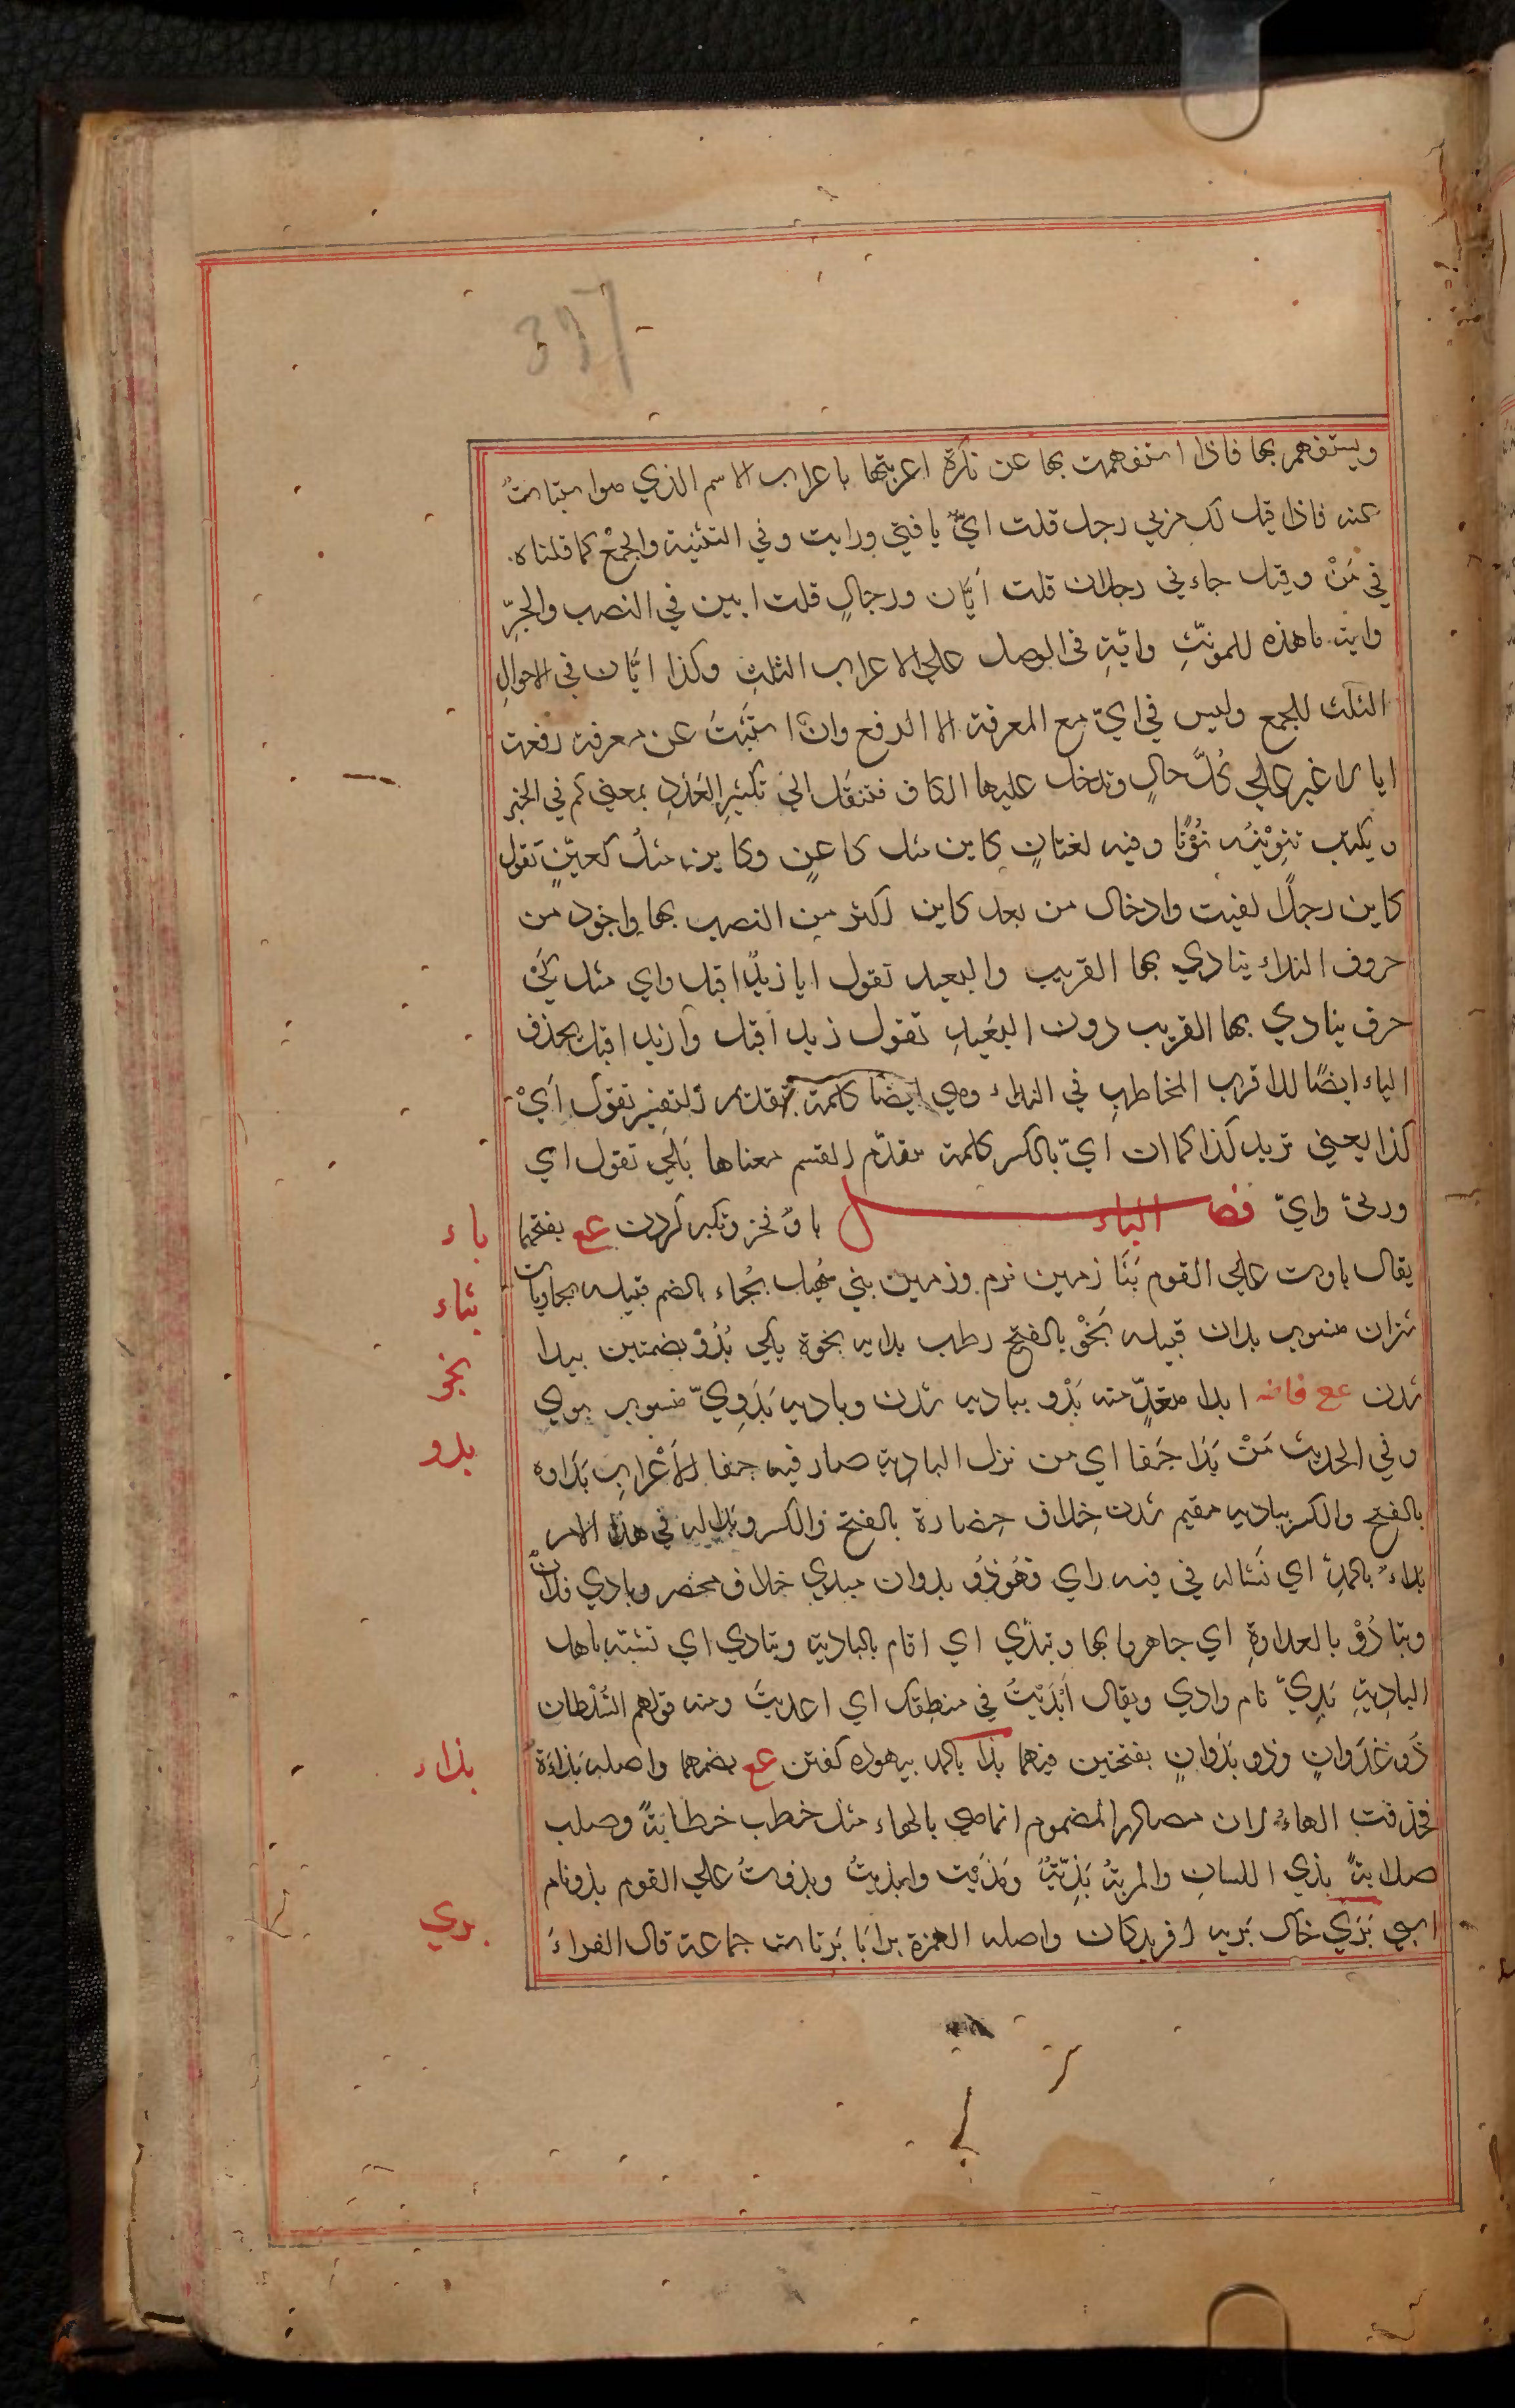 ويستفهم بها فاذا استفهمت بها عن نكرة اعربتها باعراب الاسم الذي هو استثبات
عنه فاذا قيل لك مر بي رجل قلت ايٌّ يا فتى ورايت وفي التثنية والجمع كما قلناه
في مَنْ وقيل جاءني رجلان قلت أيّان ورجالٍ قلت ايين في النصب والجرِّ
واية ما هذه للمونّثِ وايّةٍ في الوصل علي الاعراب الثلثِ وكذا ايّان في الاحوالِ
الثلث للجمع وليس في ايّ مع المعرفة الا الرفع وانْ استثبتَ عن معرفة رفعت
ايا لا غير علي كلّ حالٍ وتدخل عليها الكاف فتنقل الي تكثيرِ العَدَدِ بمعني كم في الخبر
ويكتب تنوينُه نُوْنًا وفيه لغتانِ كاين مثل كاعنٍ وكاين مثلُ كعيّنٍ تقول
كاين رجلًا لقيت وادخال من بعد كاين اكثر من النصب بها واجود من
حروف النداء ينادي بها القريب والبعيد تقول ايا زيدُ اقبل واي مثل كَيْ
حرف ينادي بها القريب دون البعيدِ تقول زيد اقبل وا زيد اقبل بحذف
الياء ايضًا للاقرب المخاطبِ في النداء وهي ايضًا كلمة تقدّم التفسير تقول أيْ
كذا يعني تريد كذا كما ان ايّ بالكسر كلمة تقدّم القسم معناها بَلَي تقول اي
وربّي وايّ فصل الباء باوٌ فخر وتكبر كردن عع بفتحهما
يقال باوت علي القوم بَثَا زمين نرم وزمين بني سُهيل بُجاء بالضم قبيله بجاويات
شتران منسوب بدان قبيله بَخْوٌ بالفتح رطب بدايه بخوة يكي بُدُوّ بضمتين پيدا
شدن عع فاضه ابدا متعدٍّ منه بَدْو بباديه شدن وباديه بَدَوِيّ منسوب بوي
وفي الحديث مَنْ بَدَا جَفا اي من نزل الباديةِ صار فيه جفا الأعرابِ بَداوه
بالفتح والكسر بباديه مقيم شدن خلاف حِضارة بالفتح والكسر وبدا له في هذا الامر
بَداءٌ بالمدِّ اي نَشَا له في فيه راي وَهُوَ ذُو بدوان مبدي خلاف محضر وبادي فلانٌ
وتبادُوْ بالعداوةِ اي جاهروا بها وتبدّي اي اقام بالبادية وتبادي اي تشبّه باهل
الباديةِ بَدِيّ نام وادي ويقال ابْدَيْتُ في منطِقك اي اعديتَ ومنه قولهم السُلْطان
ذُو عَدَوانٍ وذو بَدَوانٍ بفتحتين فيهما بذا بالمد بيهوده كفتن عع بضمهما واصله بَذاءَة
فحذفت الهاءُ لان مصادر المضموم انما هي بالهاء مثل خطب خطابَةً وصلب
صلابةً بذي اللسانِ والمرية بَذِيّةٌ وبَذَيْت وابذيتُ وبذوتُ علي القوم بذو نام
اسبي بَرَي خاك بَريه افريدكان واصله الهمزة برايا بَرنا ست جماعة قال الفراءَ
باء
بثاء
بخو
بدو
بذاء
بري